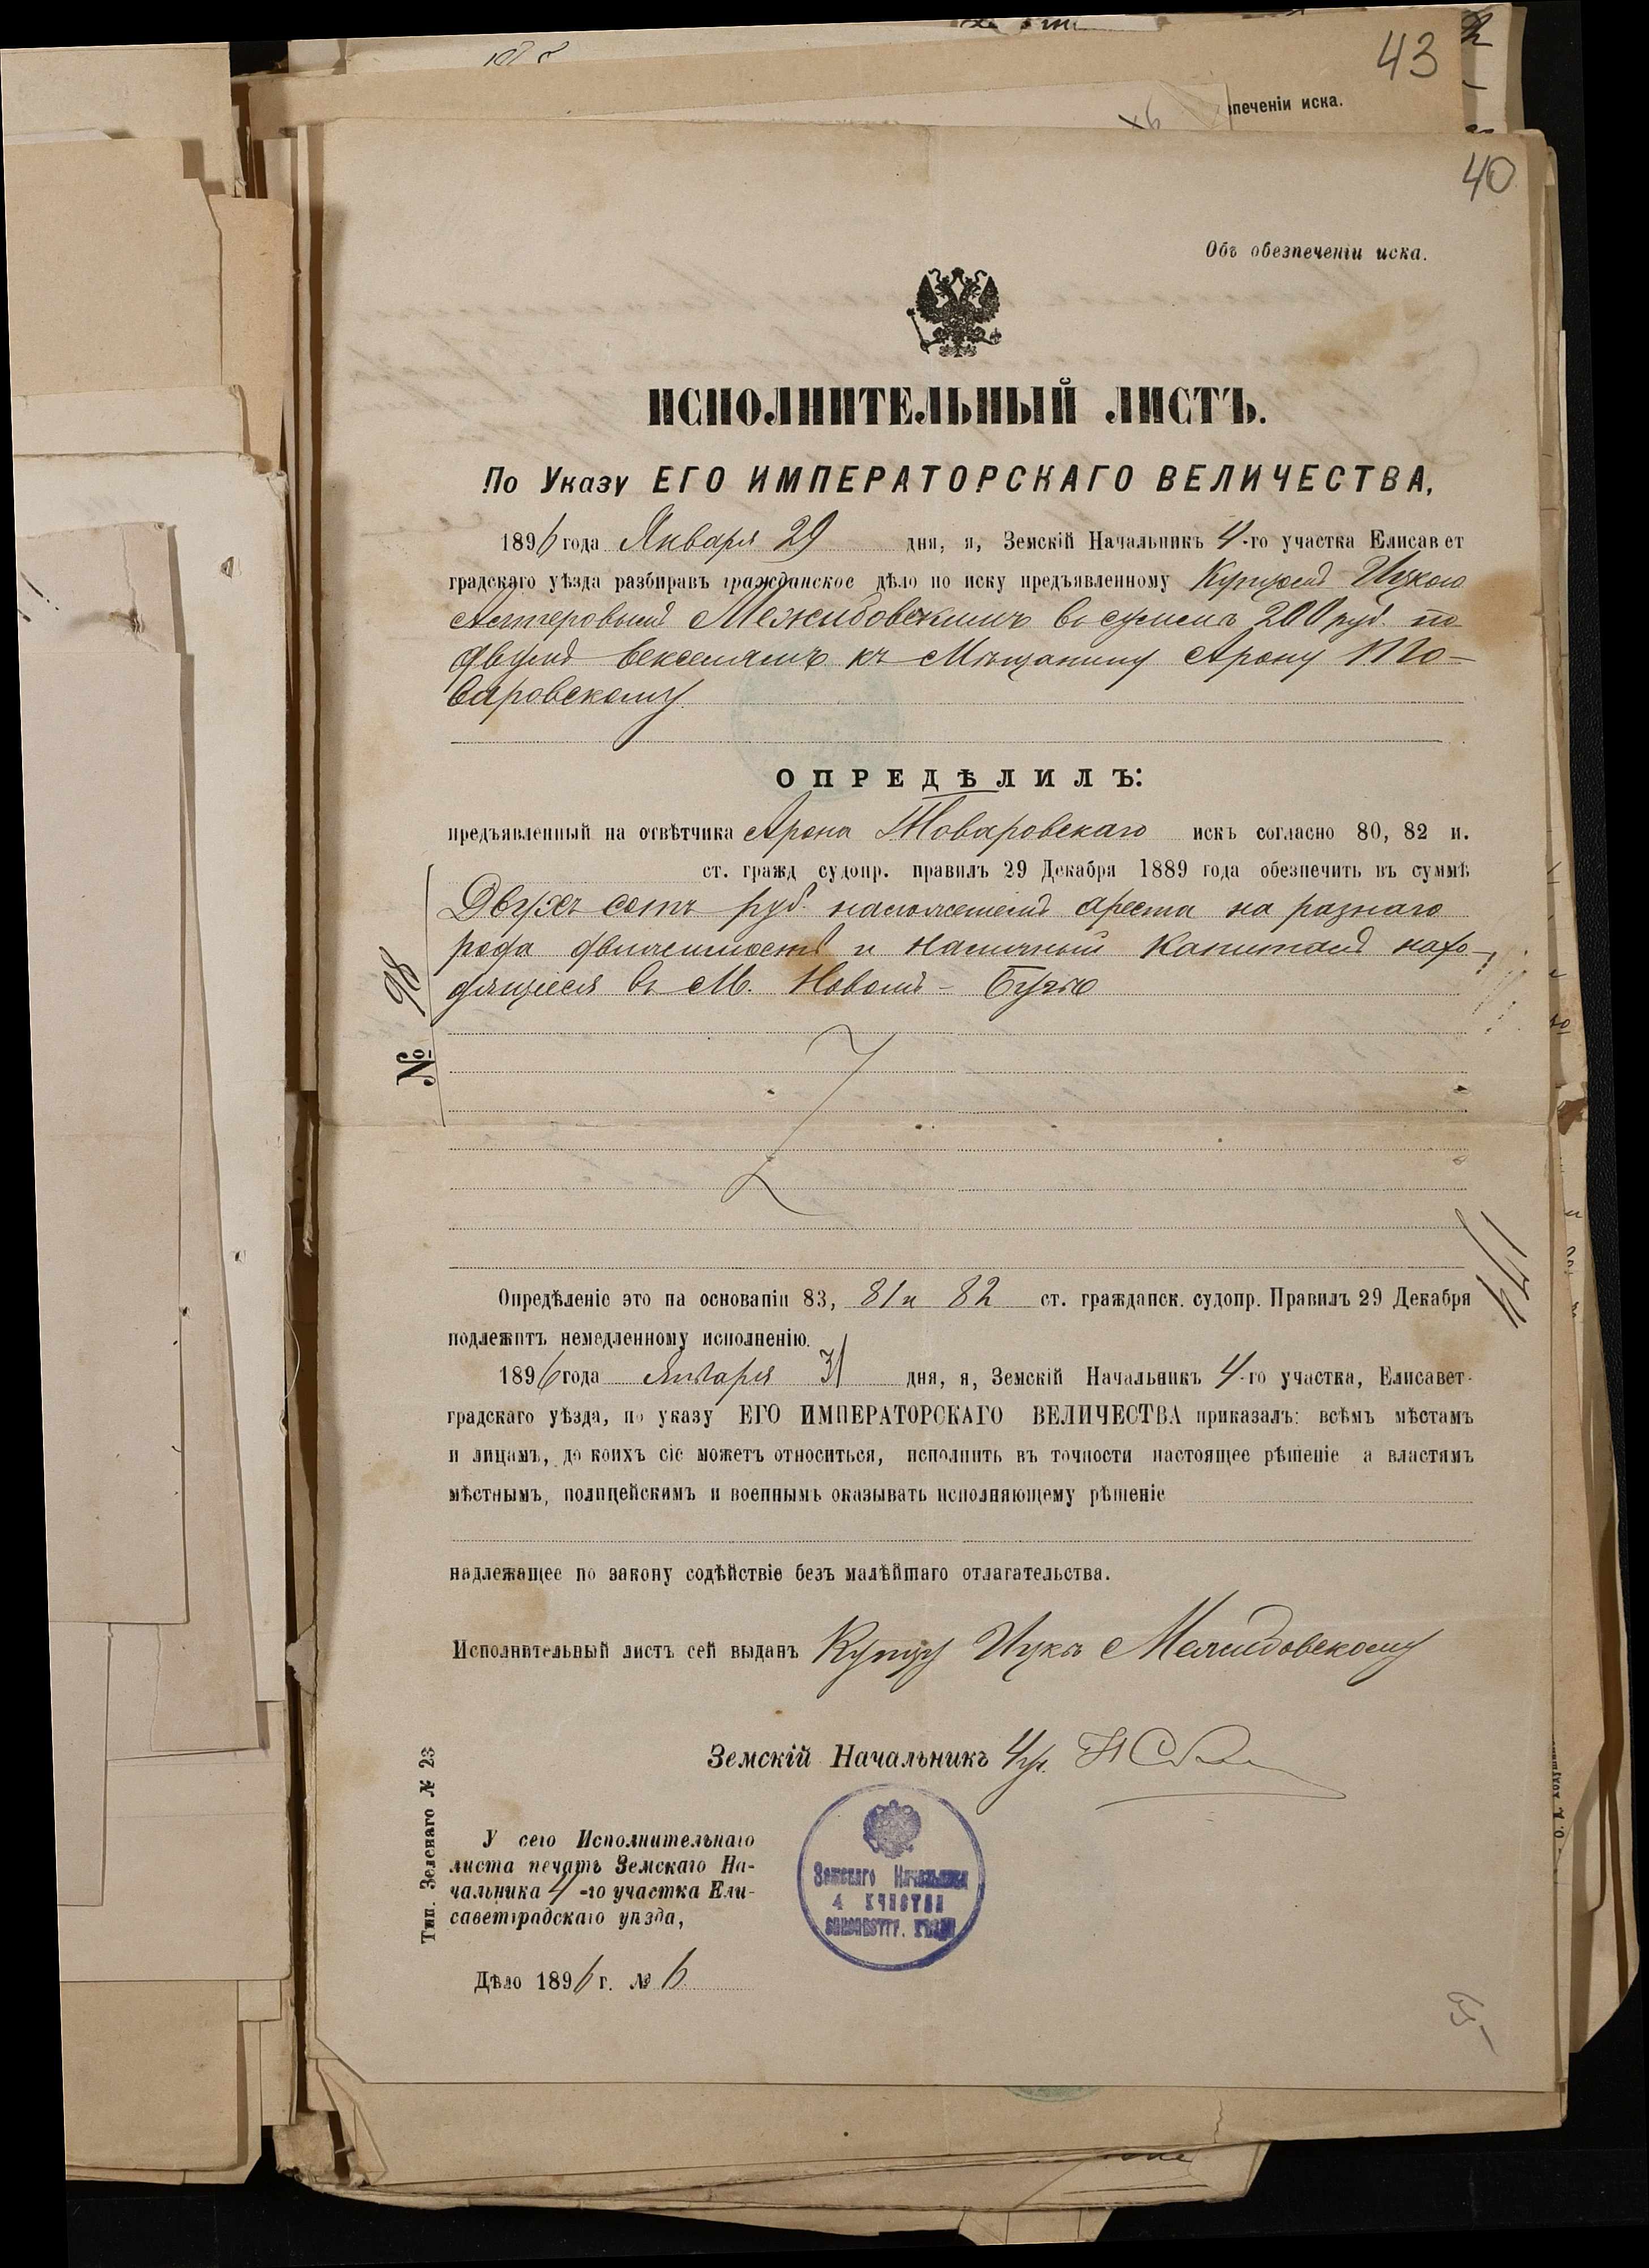 43
зпеченіи иска.
40
Объ обезпеченіи иска.
ИСПОЛНИТЕЛЬНЫЙ ЛИСТЪ.
По Указу ЕГО ИМПЕРАТОРСКАГО ВЕЛИЧЕСТВА,
1896 года Января 29 дня, я, Земскій Начальникъ 4-го участка Елисавет
градскаго уѣзда разбиравъ гражданское дѣло по иску предъявленному Купцомъ Ицкою
Межибовскимъ въ суммѣ 200 руб. по
двумъ векселямъ къ Мѣщанину Арону То-
варовскому
ОПРЕДѢЛИЛЪ:
предъявленный на отвѣтчика Арона Товаровскаго искъ согласно 80, 82 и.
ст. гражд судопр. правилъ 29 Декабря 1889 года обезпечить въ суммѣ
Двухъ сотъ руб. наложеніемъ ареста на разнаго
рода движимость и наличный капиталъ нахо-
дящіеся въ М. Новомъ-Бугѣ
№ 98
Опредѣленіе это на основаніи 83, 81 и 82 ст. гражданск. судопр. Правилъ 29 Декабря
подлежитъ немедленному исполненію.
1896 года Января 31 дня, я, Земскій Начальникъ 4-го участка, Елисавет-
градскаго уѣзда, по указу ЕГО ИМПЕРАТОРСКАГО ВЕЛИЧЕСТВА приказалъ: всѣмъ мѣстамъ
и лицамъ, до коихъ сіе можетъ относиться, исполнить въ точности настоящее рѣшеніе а властямъ
мѣстнымъ, полицейскимъ и военнымъ оказывать исполняющему рѣшеніе
надлежащее по закону содѣйствіе безъ малѣйшаго отлагательства.
Исполнительный листъ сей выданъ Купцу Ицкѣ Межибовскому
Земскій Начальникъ 4 уч.
У сего Исполнительнаго
листа печать Земскаго На-
чальника 4-го участка Ели-
саветградскаго уѣзда,
Земскаго Начальника
4 участка
Елисаветгр. уѣзда
Дѣло 1896 г. № 6
Тип. Зеленаго № 23